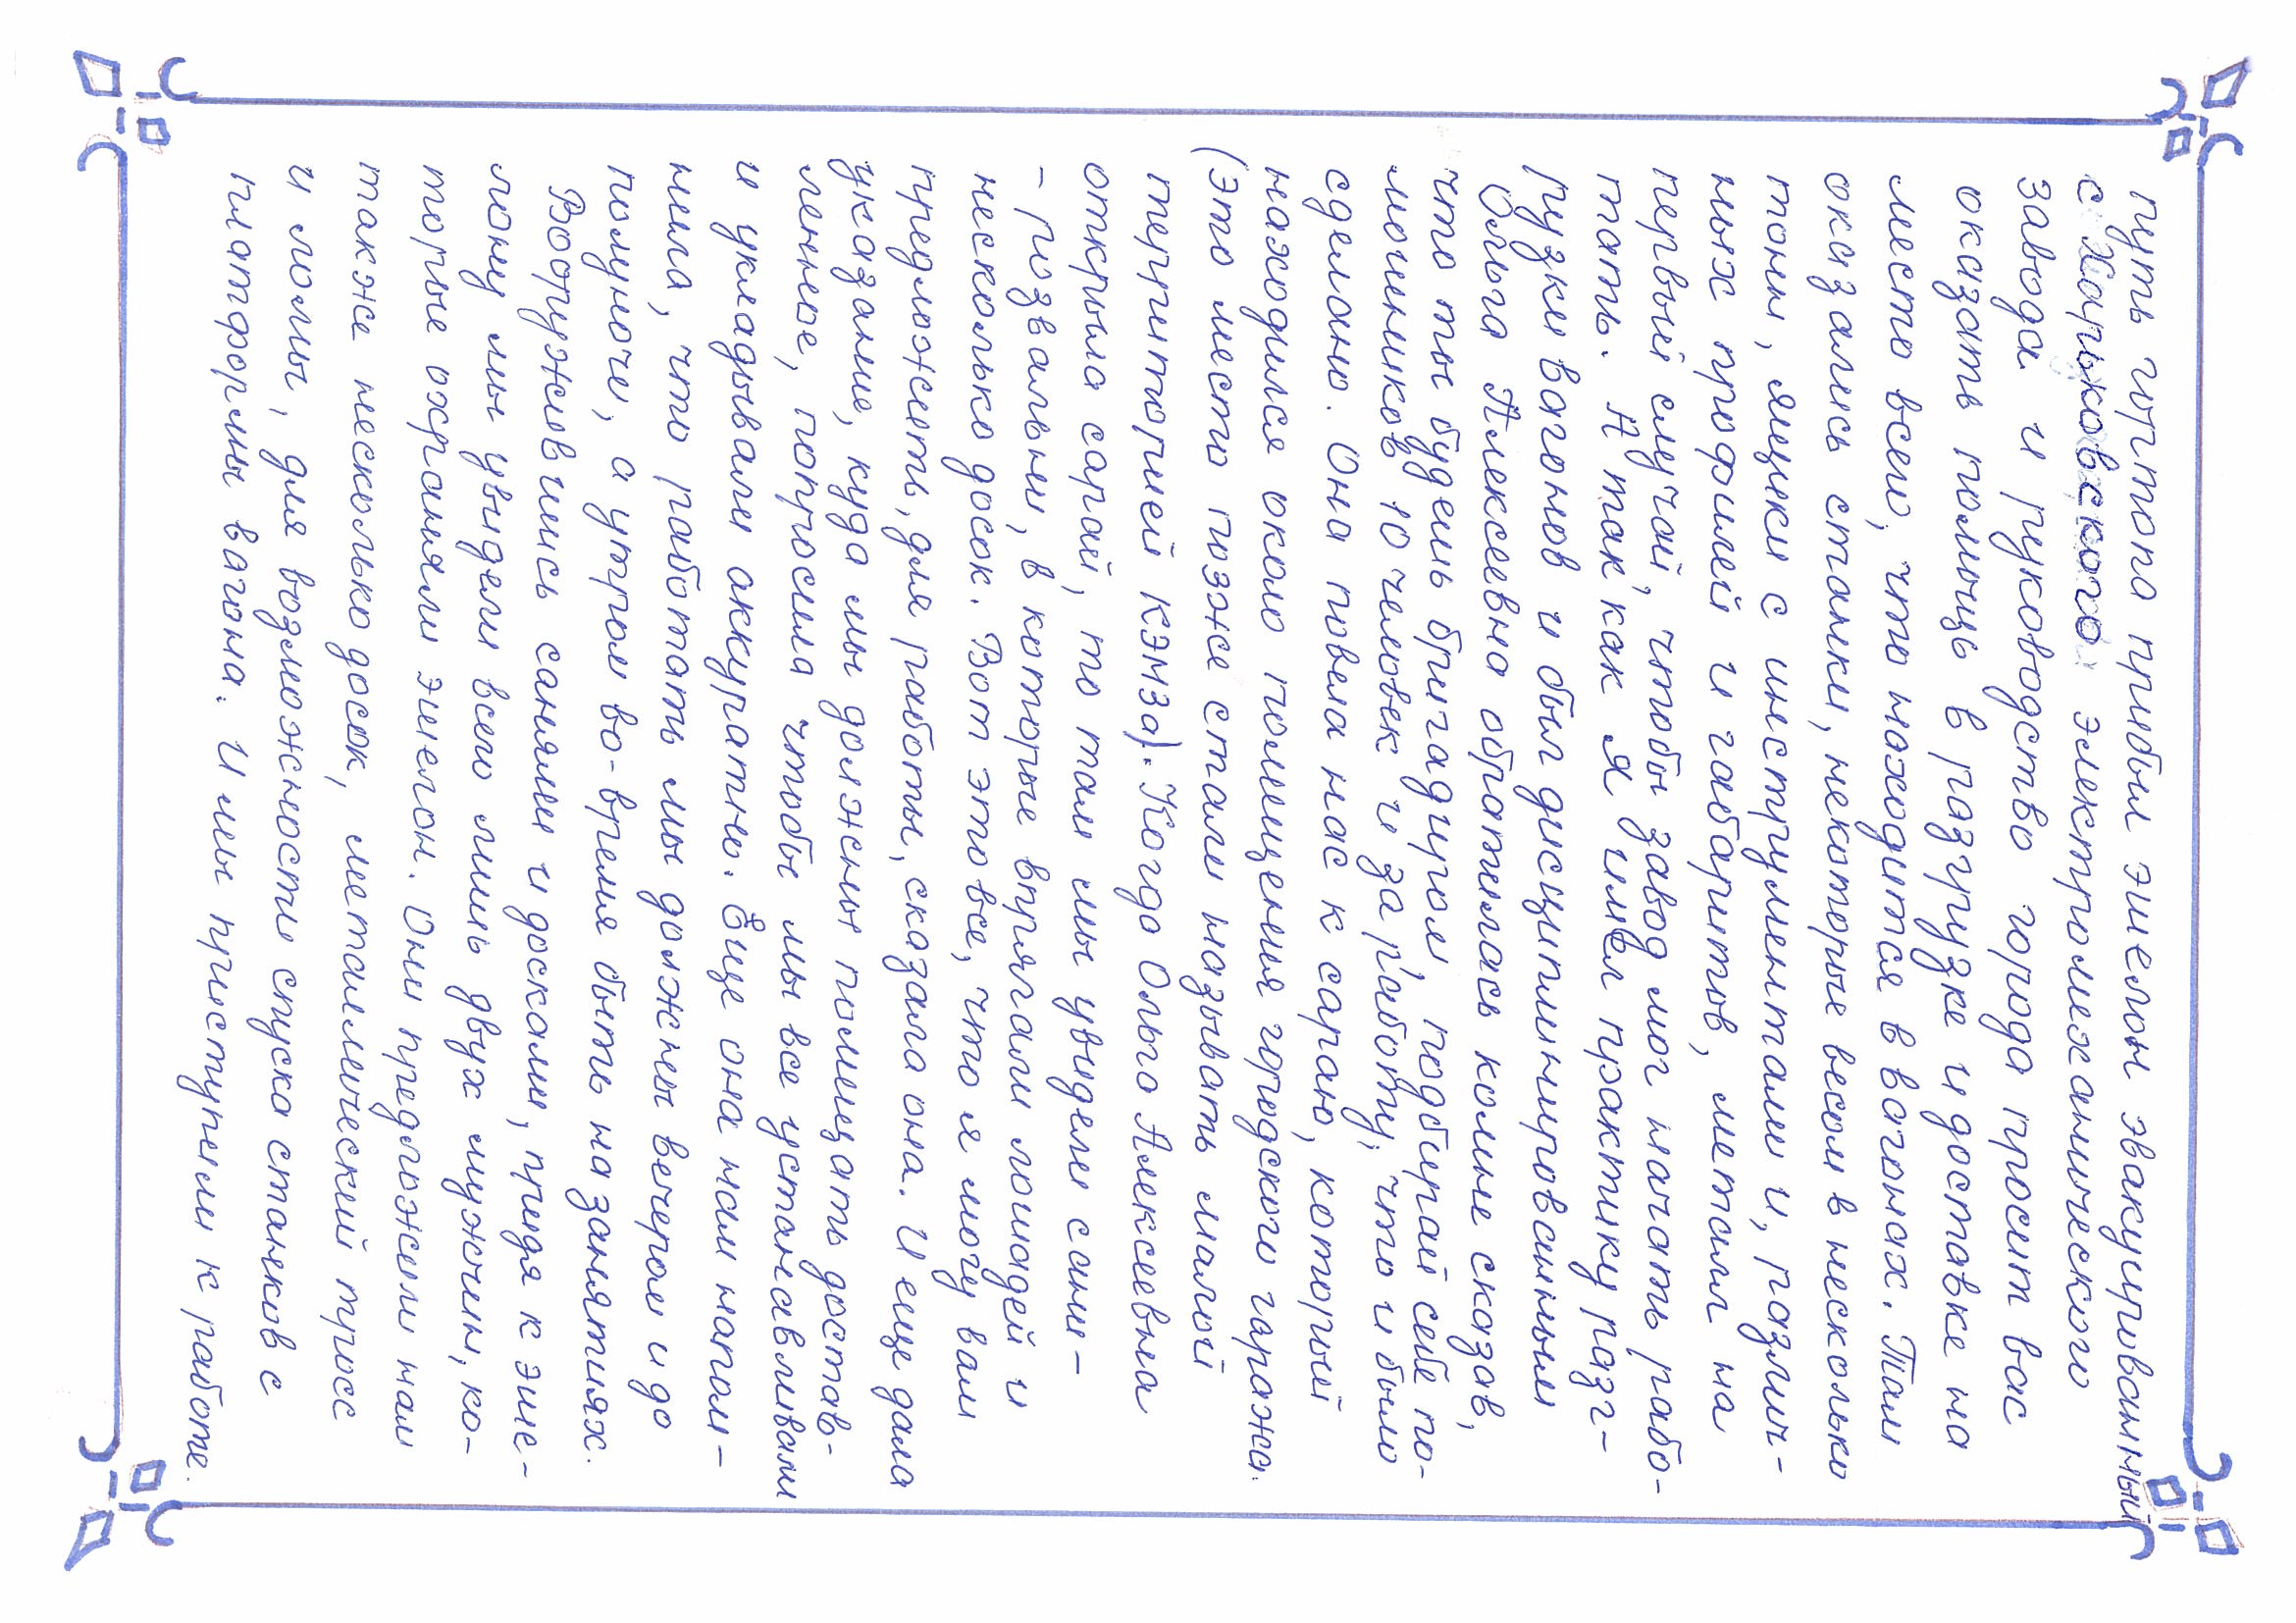 путь города прибыл эшелон эвакуированный
с Харьковского электромеханического
завода и руководство города просит вас
оказать помощь в разгрузке и доставке на
место всего, что находится в вагонах. Там
оказались станки, некоторые весом в несколько
тонн, ящики с инструментами и, различ-
ных профилей и габаритов, металл на
первый случай, чтобы завод мог начать рабо-
тать. А так как я имел практику разг-
рузки вагонов и был дисциплинированным
Ольга Алексеевна обратилась ко мне сказав,
что ты будешь бригадиром, подбирай себе по-
мощников 10 человек и за работу, что и было
сделано. Она повела нас к сараю, который
находился около помещения городского гаража.
(Это место позже стали называть малой
территорией КЭМЗа). Когда Ольга Алексеевна
открыла сарай, то там мы увидели сани-
- розвальни, в которые впрягали лошадей и
несколько досок. Вот это все, что я могу вам
предложить, для работы, сказала она. И еще дала
указание, куда мы должны помещать достав-
ленное, попросила чтобы мы все устанавливали
и укладывали аккуратно. Еще она нам напом-
нила, что работать мы должны вечером и до
полуночи, а утром во-время быть на занятиях.
Вооружившись санями и досками, придя к эше-
лону мы увидели всего лишь двух мужчин, ко-
торые охраняли эшелон. Они предложили нам
также несколько досок, металлический тросс
и ломы, для возможности спуска станков с
платформы вагона. И мы приступили к работе.